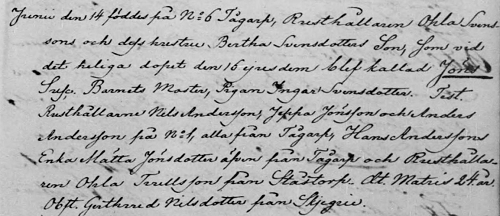 Junii den 14 föddes på No 6 Tågarp, Rusthållaren Ohla Svens
sons och dess hustrus Bertha Svensdotters Son, som vid
det heliga dopet den 16 ejusdem blef kallad Jöns
Susc. Barnets Moster, Pigan Ingar Svensdotter. Test.
Rusthållarne Nils Andersson, Jeppa Jönsson och Anders
Andersson på No 1, alla från Tågarp, Hans Anderssons
Enka Mätta Jönsdotter äfven från Tågarp och Rusthålla-
ren Ohla Trullsson från Stästorp. Æt. Matris 24 år.
Obst. Girthrud Nilsdotter från